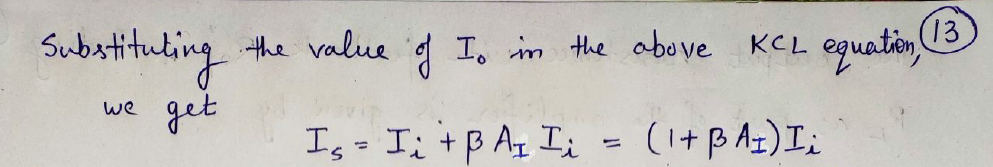 Substituting the value of I₀ in the above KCL equation, 13
we get
I_s = I_i + β A_I I_i = (1 + β A_I) I_i